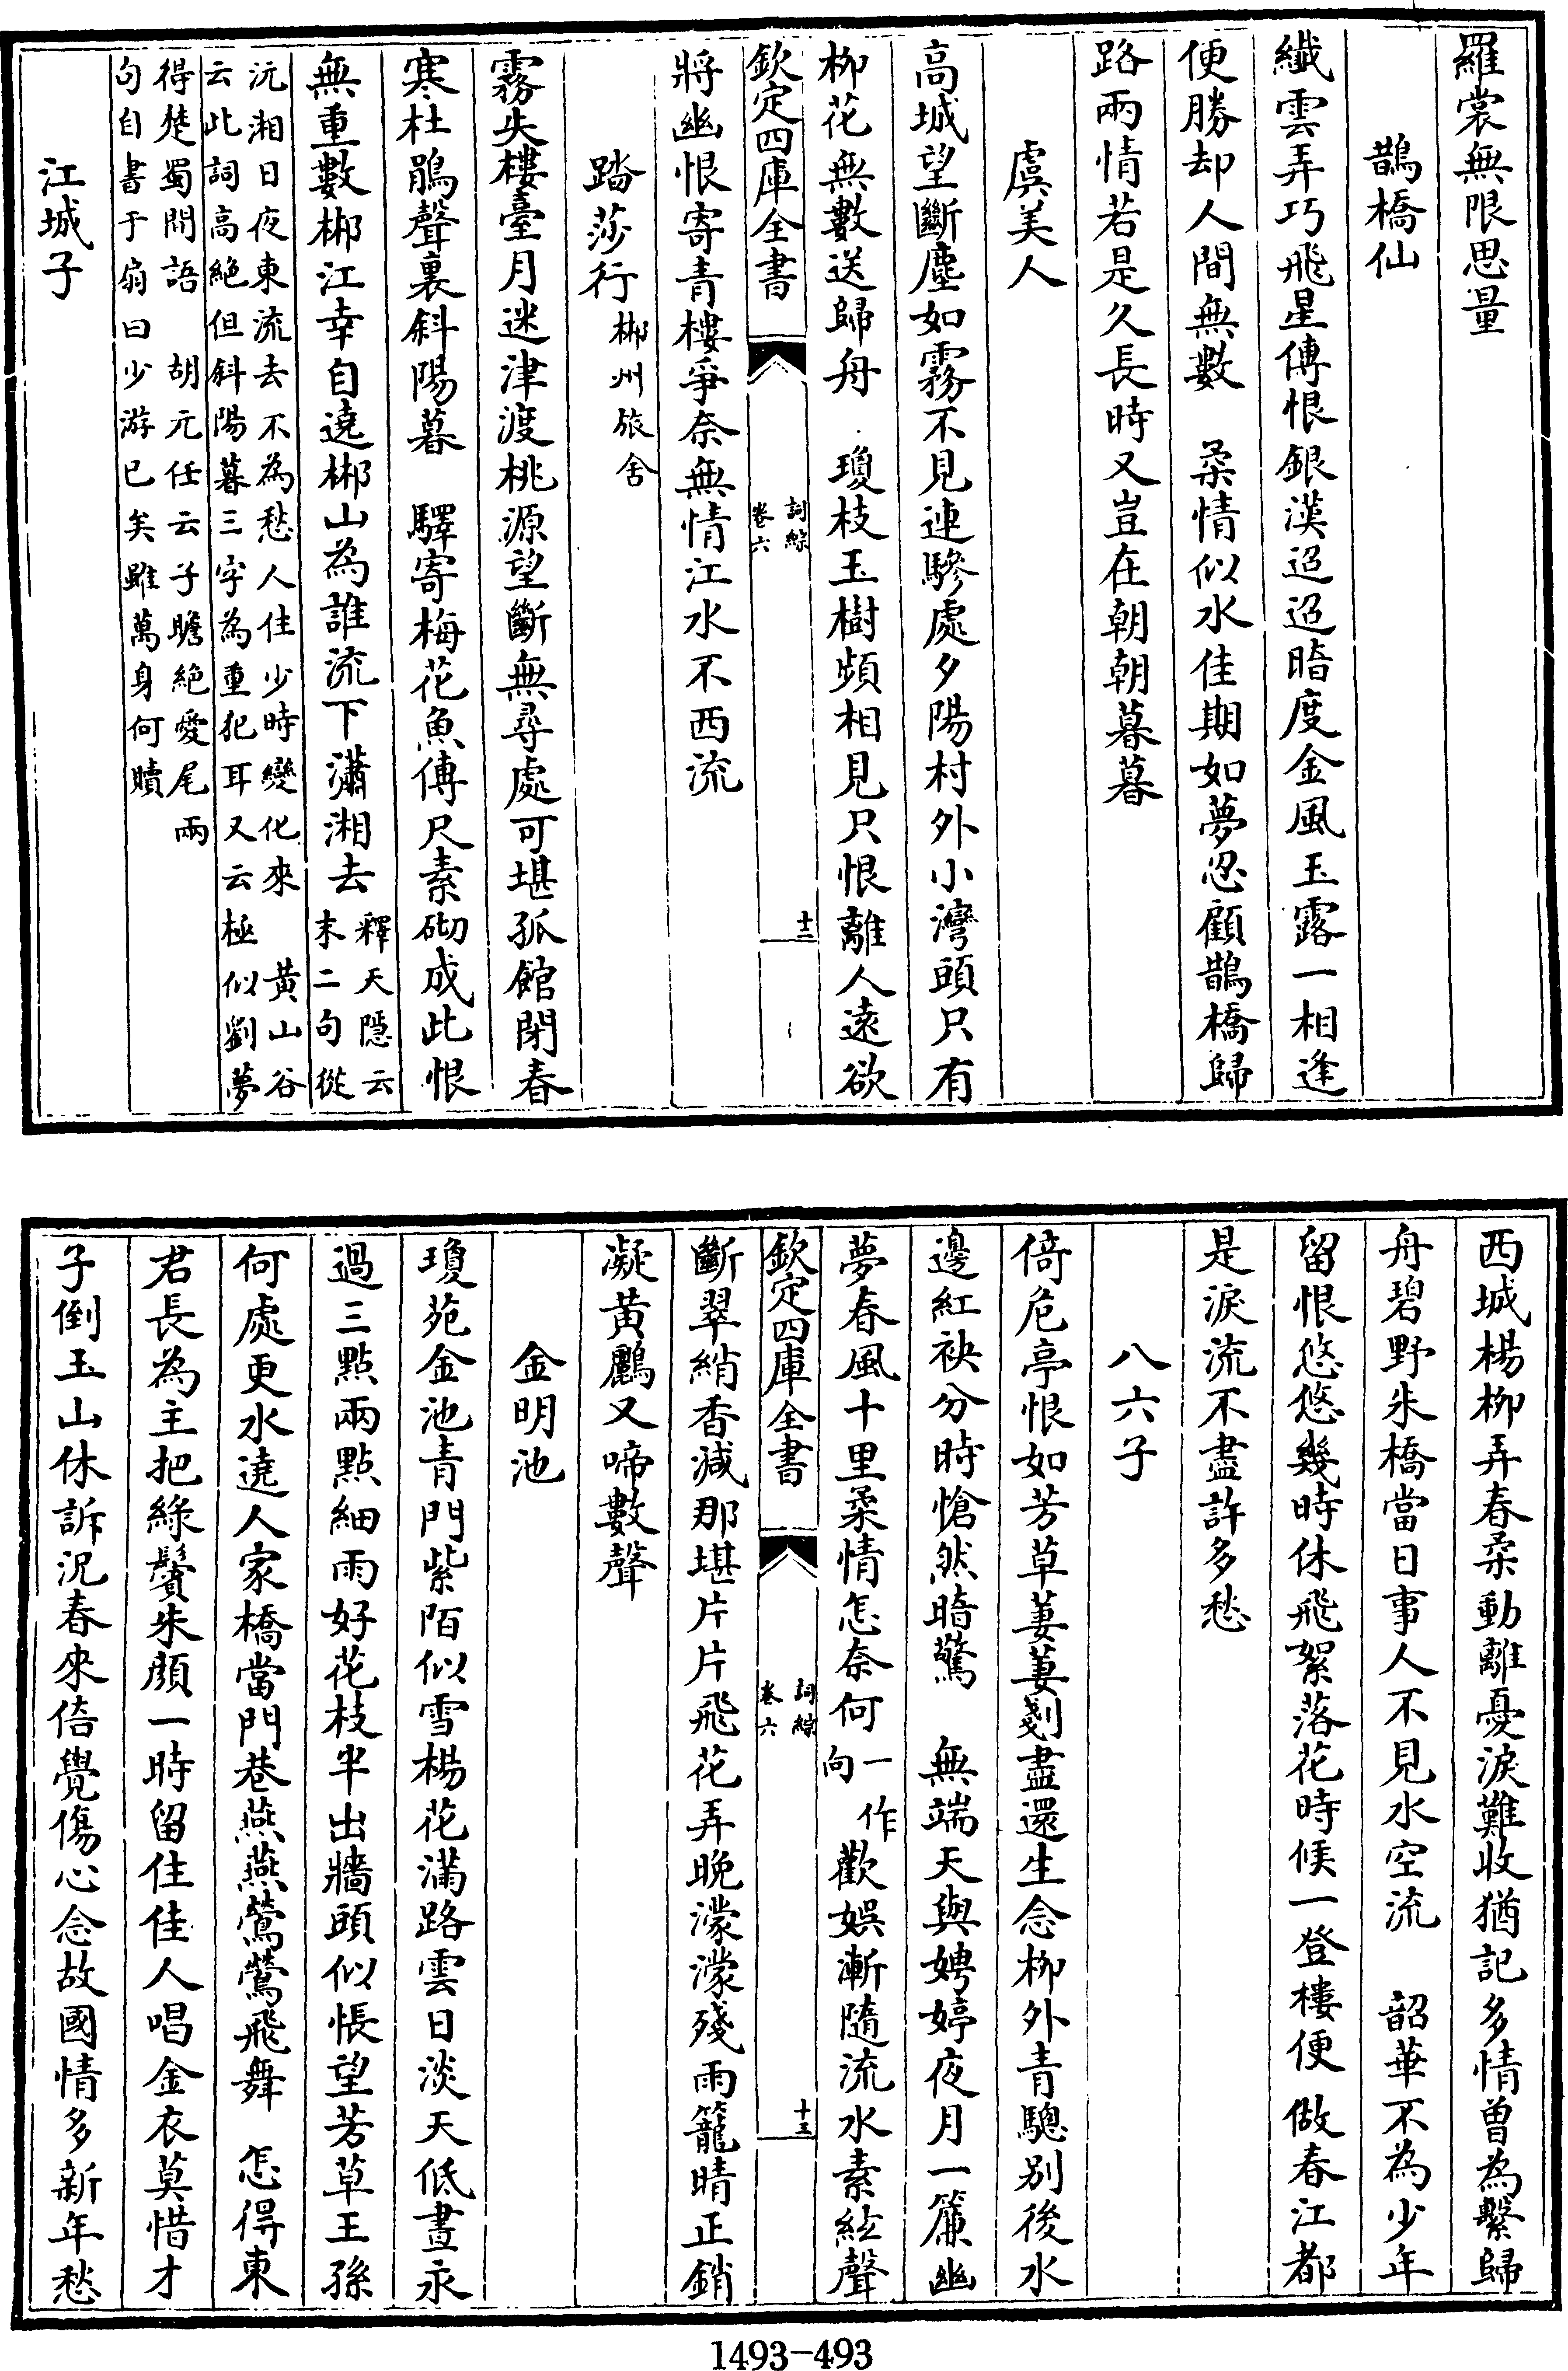 羅裳無限思量
鵲橋仙
纎雲弄巧飛星傳恨銀漢迢迢暗度金風玉露一相逢
便勝却人間無數　柔情似水佳期如夢忍顧鵲橋歸
路兩情若是久長時又豈在朝朝暮暮
虞美人
高城望斷塵如霧不見連驂處夕陽村外小灣頭只有
柳花無數送歸舟　瓊枝玉樹頻相見只恨離人遠欲
欽定四庫全書　詞綜卷六　十二
將幽恨寄青樓爭奈無情江水不西流
踏莎行郴州旅舍
霧失樓臺月迷津渡桃源望斷無尋處可堪孤館閉春
寒杜鵑聲裏斜陽暮　驛寄梅花魚傳尺素砌成此恨
無重數郴江幸自遶郴山為誰流下瀟湘去釋天隱云
末二句從
沅湘日夜東流去不為愁人住少時變化來　黃山谷
云此詞高絕但斜陽暮三字為重犯耳又云極似劉夢
得楚蜀間語　胡元任云子瞻絕愛尾兩
句自書于扇曰少游已矣雖萬身何贖
江城子
西城楊柳弄春柔動離憂淚難收猶記多情曾為繫歸
舟碧野朱橋當日事人不見水空流　韶華不為少年
留恨悠悠幾時休飛絮落花時候一登樓便做春江都
是淚流不盡許多愁
八六子
倚危亭恨如芳草萋萋剗盡還生念柳外青驄别後水
邊紅袂分時愴然暗驚　無端天與娉婷夜月一簾幽
夢春風十里柔情怎奈何一作向歡娛漸隨流水素絃聲
欽定四庫全書　詞綜卷六　十三
斷翠綃香減那堪片片飛花弄晚濛濛殘雨籠晴正銷
凝黃鸝又啼數聲
金明池
瓊苑金池青門紫陌似雪楊花滿路雲日淡天低晝永
過三點兩點細雨好花枝半出牆頭似悵望芳草王孫
何處更水遶人家橋當門巷燕燕鶯鶯飛舞　怎得東
君長為主把綠鬢朱顏一時留住佳人唱金衣莫惜才
子倒玉山休訴況春來倍覺傷心念故國情多新年愁
1493-493